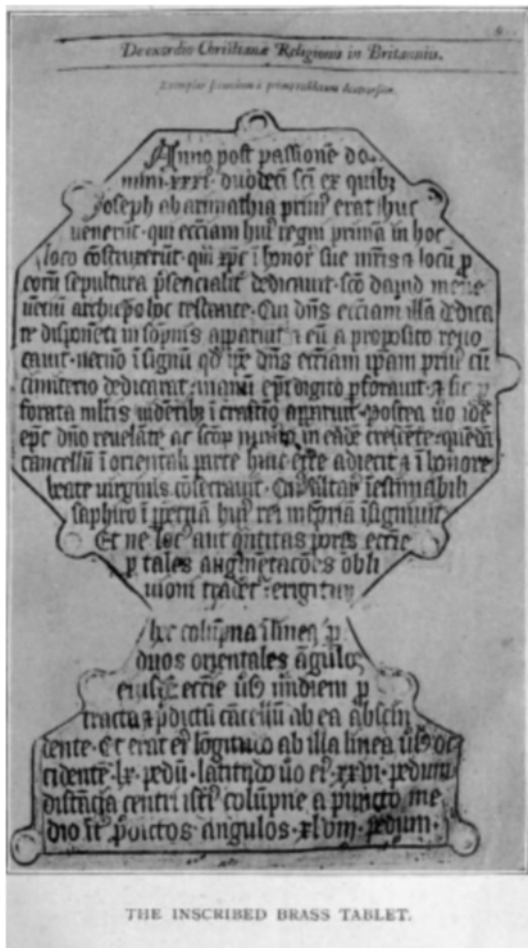 De exordio Christianæ Religionis in Britanniis.
Exemplar secundum a primo
Anno post passionē do
mini xxxi duodecī scī ex quibꝫ
Joseph ab arimathia primꝰ erat huc
venerūt · qui eccīam huiꝰ regni primā in hoc
loco cōstruxerūt · quā xp̄c ī honorē sue mr̄is ⁊ locū p̄
eorū sepultura p̄sencialit̄ dedicauit · scō dauid mene
uenciū archiep̄o hoc testante · Cui dn̄s eccīam illā dedica
re disponēti in sōpnis apparuit ⁊ eū a proposito reuo
cauit · necnō ī signū qd ip̄e dn̄s eccīam ip̄am priꝰ cū
cimiterio dedicarat · manū ep̄i digito p̄forauit · ⁊ sic p̄
forata mltis vidētibꝫ ī crastīo apparuit · Postea v̄o idē
ep̄c dn̄o reuelāte ac scōꝝ in eādē crescēte · quēdā
cancellū ī orientali parte huic eccīe adiecit ⁊ ī honore
beate virginis cōsecrauit · Cuiꝰ altar̄ īestimabili
saphiro ī ꝑpetuā huiꝰ rei memoriā īsigniuit
Et ne locꝰ aut q̄ntitas prioris eccīe
p̄ tales augmētacōes obli
uioni traderet̄ : erigitur
hec colūpna ī linea p̄
duos orientales āgulos
eiusdē eccīe v̄sꝰ m̄idiem p̄
tracta ⁊ p̄dictū cācellū ab ea absci
dente · Et erat eiꝰ lōgitudo ab illa linea v̄sꝰ oc
cidentē · lx · pedū · latitudo v̄o eiꝰ · xxvi · pedum
distācia centri istiꝰ colūpne a puncto me
dio īt̄ p̄dictos angulos · xlviii · pedum ·
THE INSCRIBED BRASS TABLET.